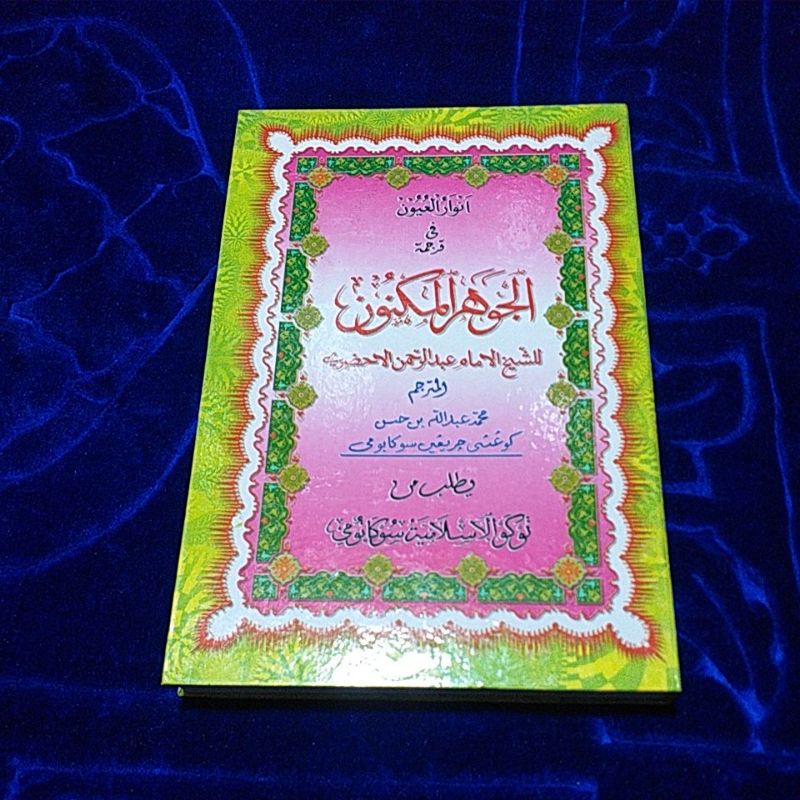 اَنْوَارُ الْعُيُوْنِ
فى
ترجمة
الْجَوْهَرِ الْمَكْنُوْنِ
للشّيخ الامام عبد الرّحمن الاحضرى
المترجم
محمّد عبد الله بن حسن
كوڠسى جريڠين سوكابومى
يطلب من
توكو الْاِسْلَامِيَة سُوكَابُومِي